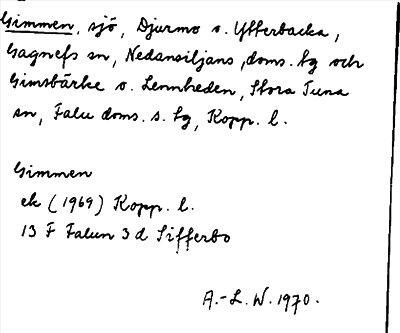 Gimmen, sjö, Djurmo o. Ytterbacka,
Gagnefs sn, Nedansiljans, doms. tg och
Gimsbärke o. Lennheden, Stora Tuna
sn, Falu doms. s. tg, Kopp. l.
Gimmen
ek (1969) Kopp. l.
13 F Falun 3 d Sifferbo
A.-L. W. 1970.